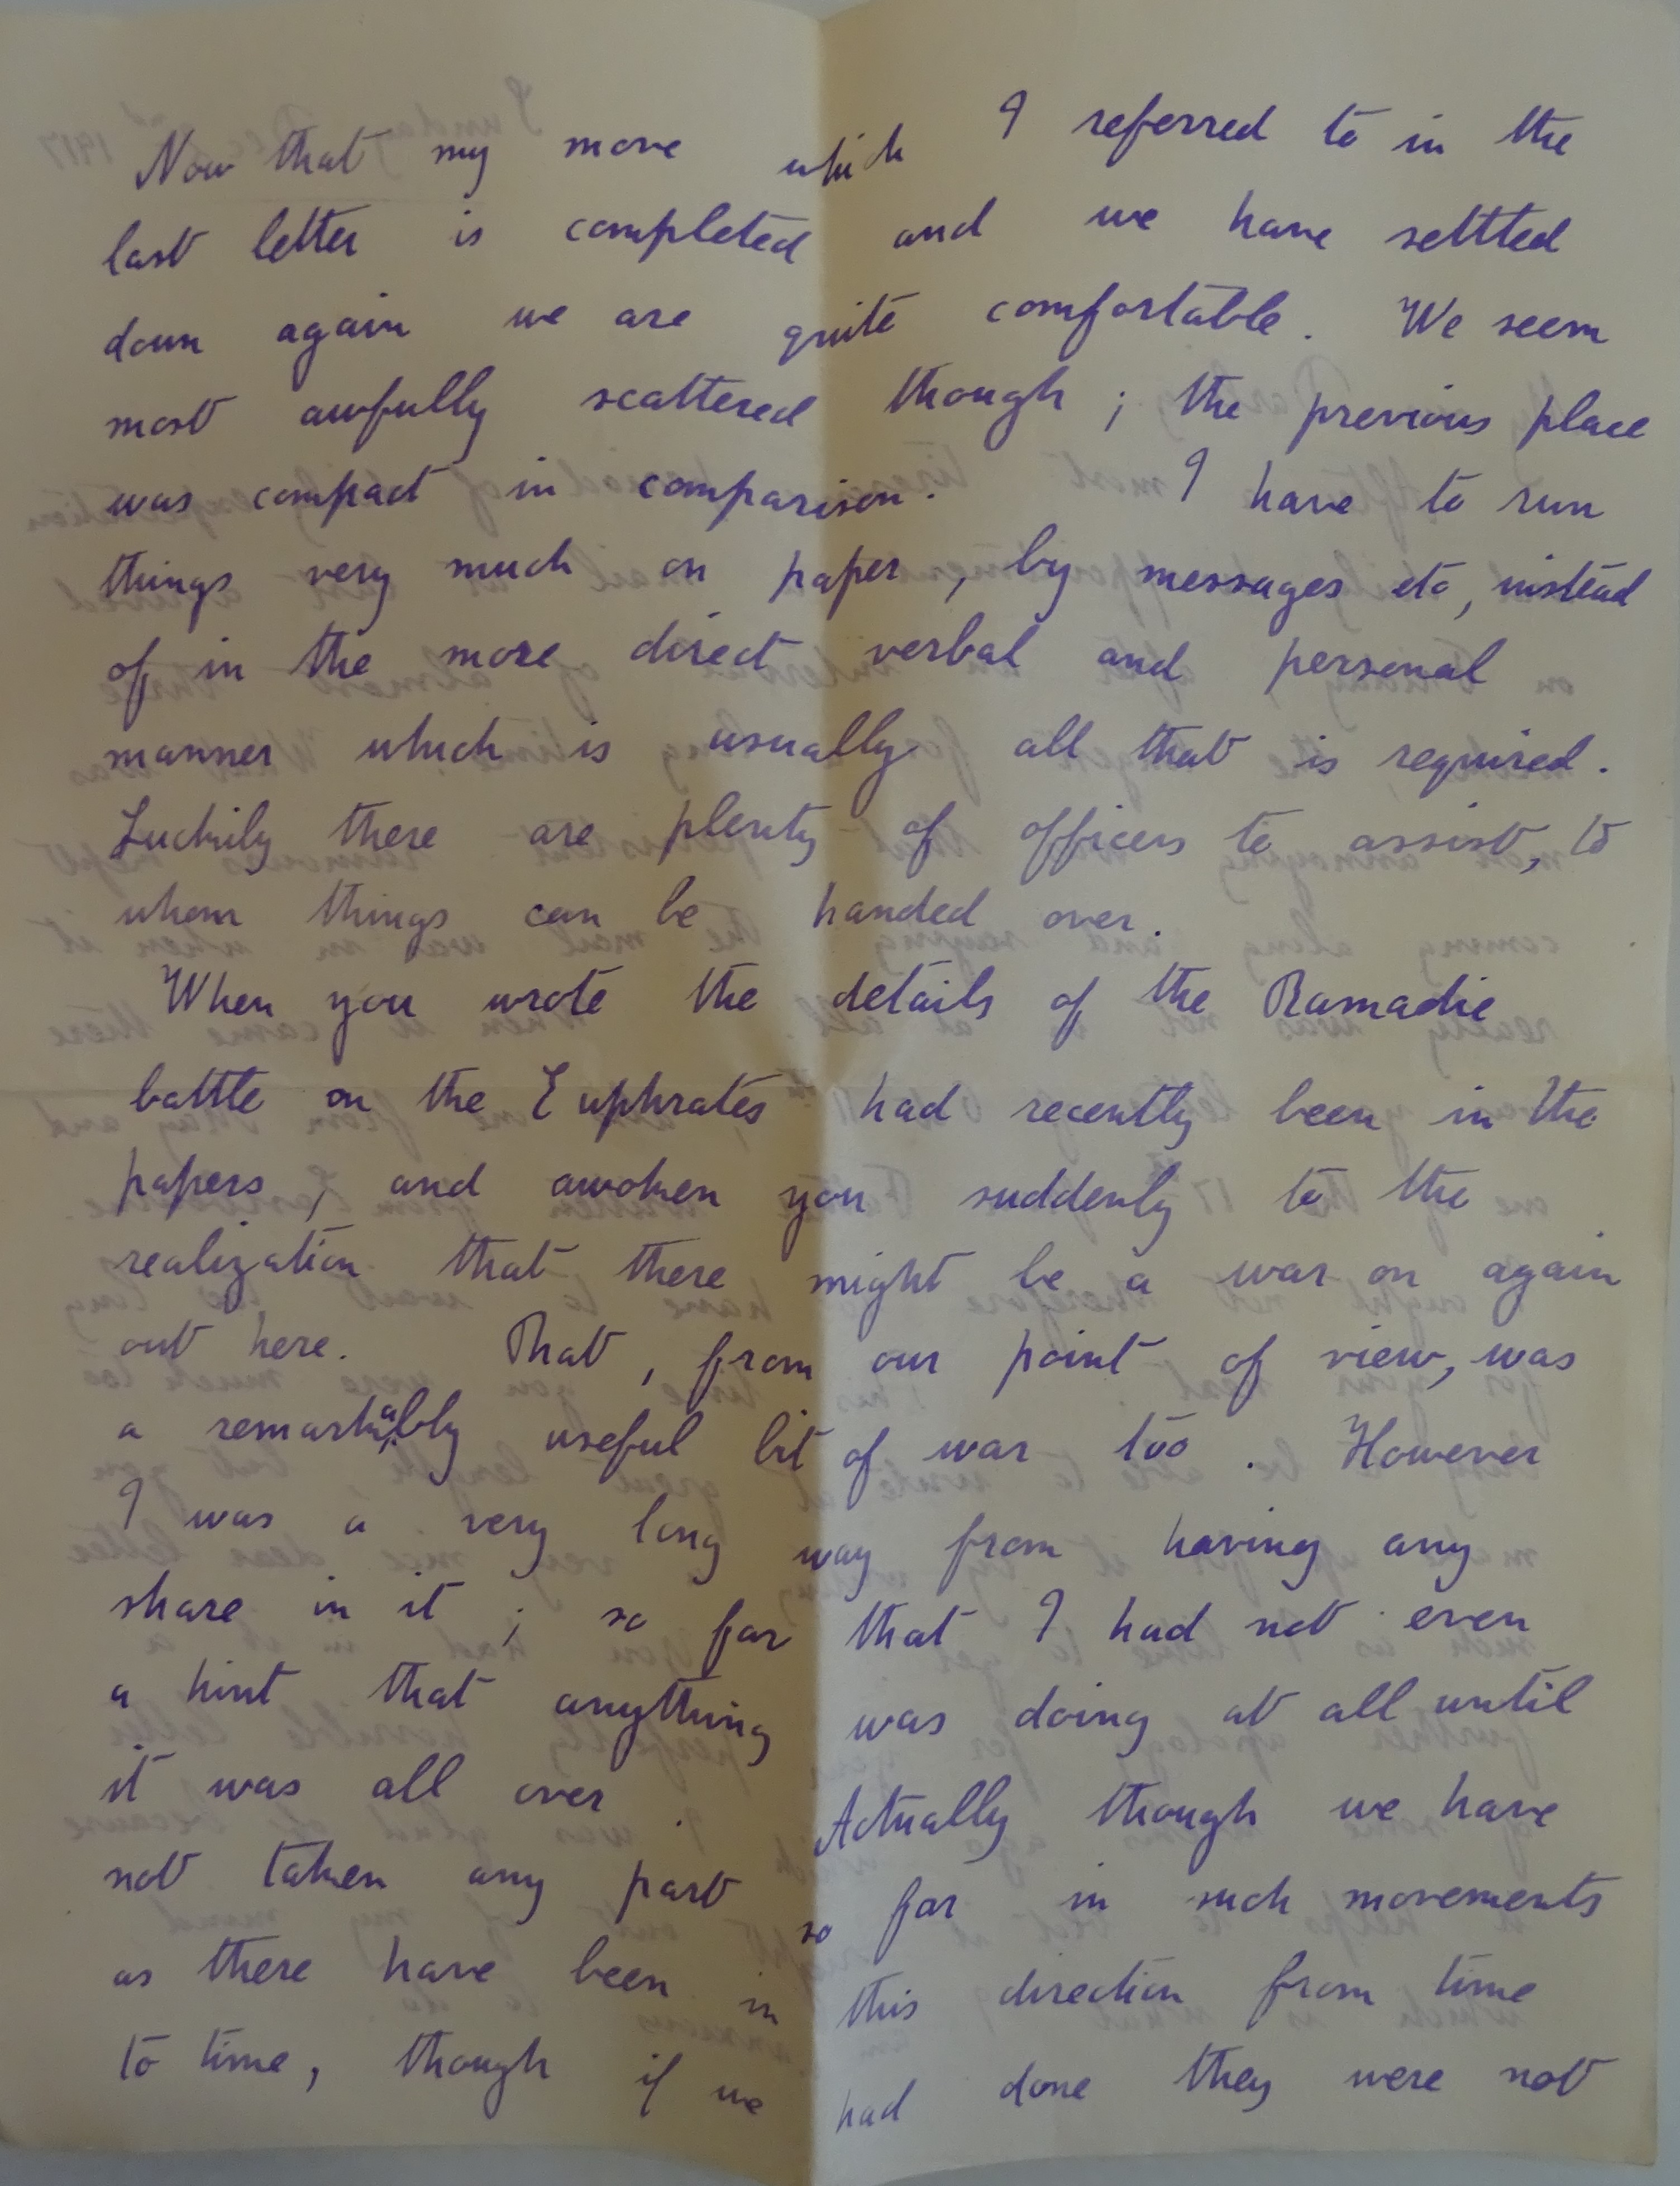 Now that my move which I referred to in the
last letter is completed and we have settled
down again we are quite comfortable. We seem
most awfully scattered though; the previous place
was compact in comparison. I have to run
things very much on paper, by messages etc, instead
of in the more direct verbal and personal
manner which is usually all that is required.
Luckily there are plenty of officers to assist, to
whom things can be handed over.
When you wrote the details of the Ramadie
battle on the Euphrates had recently been in the
papers, and awoken you suddenly to the
realization that there might be a war on again
out here. That, from our point of view, was
a remarkably useful bit of war too. However
I was a very long way from having any
share in it; so far that I had not even
a hint that anything was doing at all until
it was all over. Actually though we have
not taken any part so far in such movements
as there have been in this direction from time
to time, though if we had done they were not